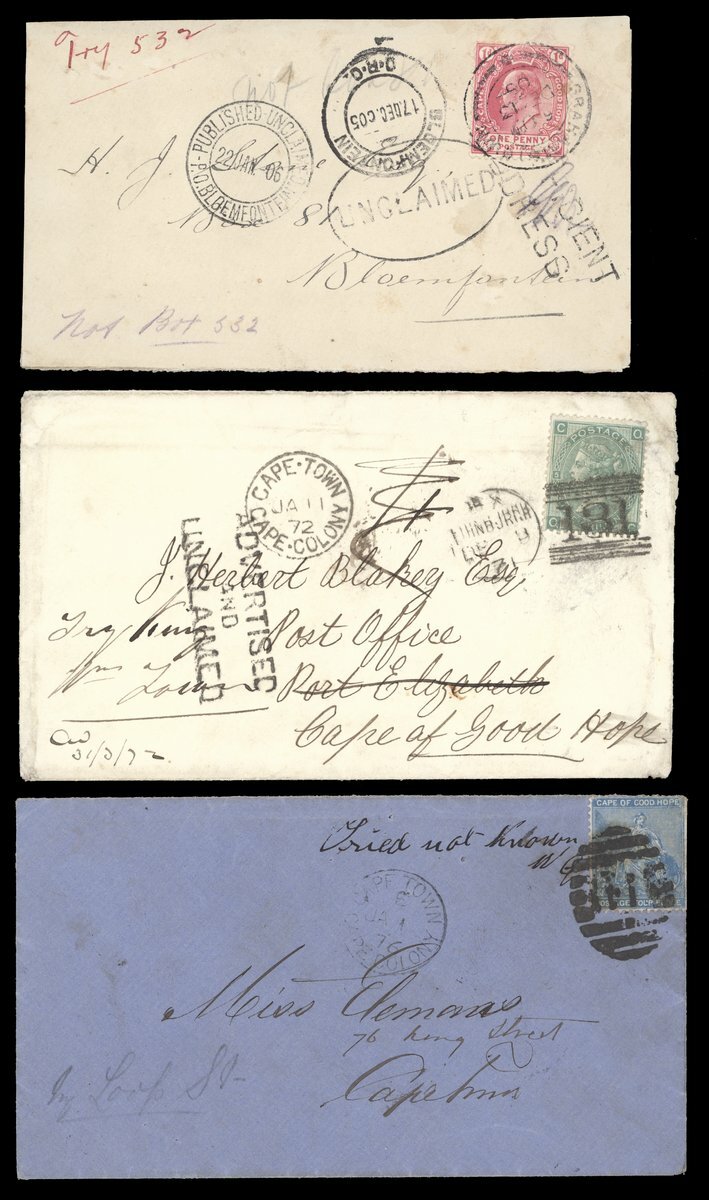 Try 532
PUBLISHED UNCLAIMED
22 JAN 06
P.O. BLOEMFONTEIN
BLOEMFONTEIN
17 DEC 05
O.R.C.
ONE PENNY
POSTAGE
H. J
UNCLAIMED
Box 81
Bloemfontein
not Box 532
POSTAGE
C Q
131
CAPE-TOWN
JA 11
72
CAPE-COLONY
EDINBURGH
ADVERTISED
AND
UNCLAIMED
J. Herbert Blakey Esq
Try King Post Office
Wms Town Port Elizabeth
Cape of Good Hope
31/3/72
CAPE OF GOOD HOPE
Tried not Known
CAPE TOWN
JA 1
76
COLONY
Miss Clemans
76 Long Street
Try Loop St
Cape Town